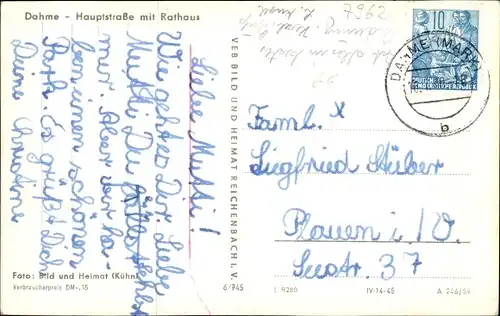 Dahme - Hauptstraße mit Rathaus
Liebe Mutti!
Wie geht es Dir? Liebe
Mutti Du fehlst
mir. Aber wir ha-
ben einen schönen
Park. Es grüßt Dich
Deine Christine
Foto: Bild und Heimat (Kühn)
Verbraucherpreis DM -,15
VEB BILD UND HEIMAT REICHENBACH I. V.
6/745
7962
10
DEUTSCHE
DEMOKRATISCHE REPUBLIK
DAHME (MARK)
b
Faml. X
Siegfried Stüber
Plauen i./V.
Seestr. 37
L 9280
IV-14-45
A 246/59